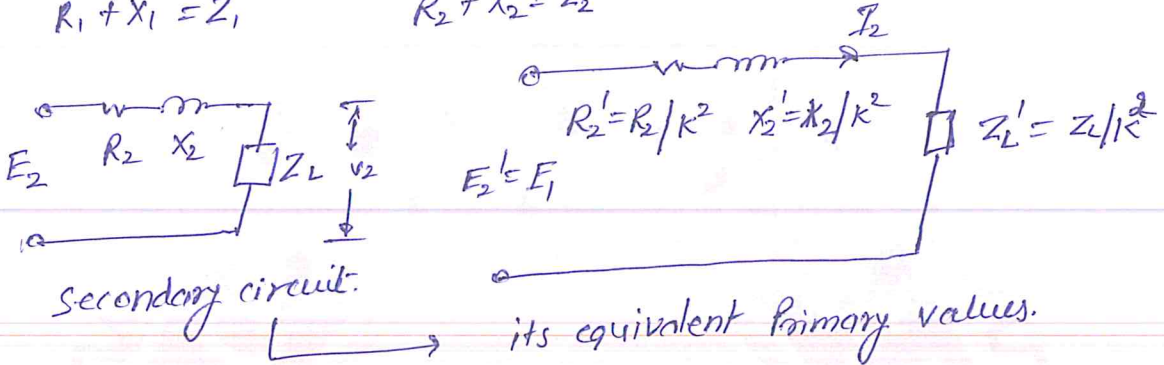 R₁ + X₁ = Z₁
R₂ + X₂ = Z₂
I₂
R₂ X₂
E₂
Z_L
V₂
R₂' = R₂/K² X₂' = X₂/K²
Z_L' = Z_L/K²
E₂' = E₁
Secondary circuit.
its equivalent Primary values.